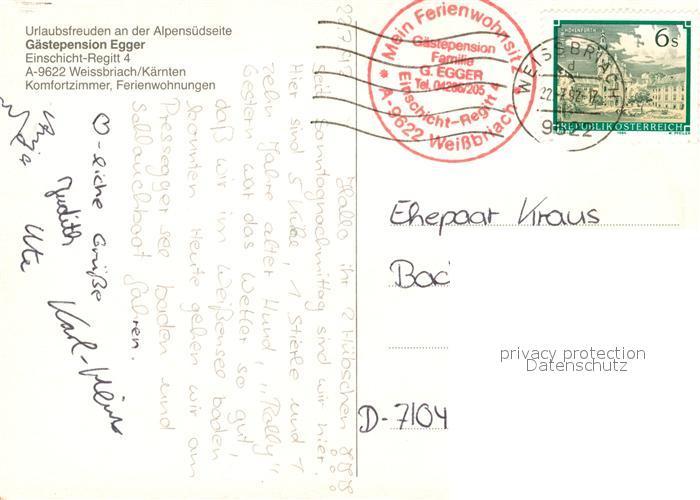 Urlaubsfreuden an der Alpensüdseite
Gästepension Egger
Einschicht-Regitt 4
A-9622 Weissbriach/Kärnten
Komfortzimmer, Ferienwohnungen
Mein Ferienwohnsitz
Gästepension
Familie
G. EGGER
Tel. 04286/205
Einschicht-Regitt 4
* A-9622 Weißbriach *
WEISSBRIACH
9622
6s
REPUBLIK ÖSTERREICH
Hallo ihr 2 Hübschen
seit Sonntagnachmittag sind wir hier.
Hier sind 5 Kühe, 1 Stier und 1
zehn Jahre alter Hund, "Rally".
Gestern war das Wetter so gut,
daß wir im Weißensee baden
konnten. Heute gehen wir am
Presseggersee baden und
Schlauchboot fahren.
♡-liche Grüße
Judith
Ute
Karl-Heinz
Ehepaar Kraus
privacy protection
Datenschutz
D-7104